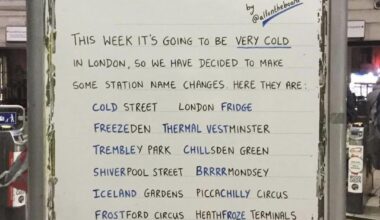 by
@allontheboard
THIS WEEK IT'S GOING TO BE VERY COLD
IN LONDON, SO WE HAVE DECIDED TO MAKE
SOME STATION NAME CHANGES. HERE THEY ARE:
COLD STREET LONDON FRIDGE
FREEZEDEN THERMAL VESTMINSTER
TREMBLEY PARK CHILLSDEN GREEN
SHIVERPOOL STREET BRRRRMONDSEY
ICELAND GARDENS PICCACHILLY CIRCUS
FROSTFORD CIRCUS HEATHFROZE TERMINALS